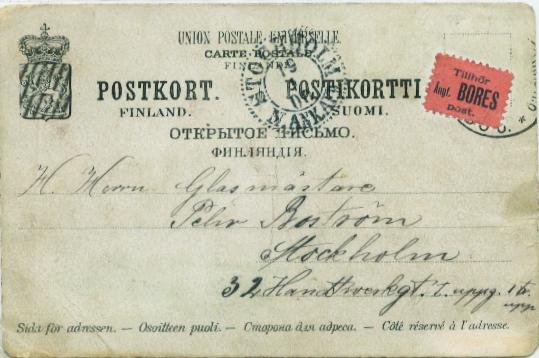 UNION POSTALE UNIVERSELLE.
CARTE POSTALE
FINLANDE
POSTKORT. POSTIKORTTI
FINLAND. SUOMI.
ОТКРЫТОЕ ПИСЬМО.
ФИНЛЯНДІЯ.
STOCKHOLM
ANK
Tillhör
Ångf. BORES
post.
H. Herrn Glasmästare
Boström
Stockholm
32 Handtwerkgt. I. uppg. 1 tr.
upp
Sida för adressen. — Osoitteen puoli. — Сторона для адреса. — Côté réservé à l'adresse.